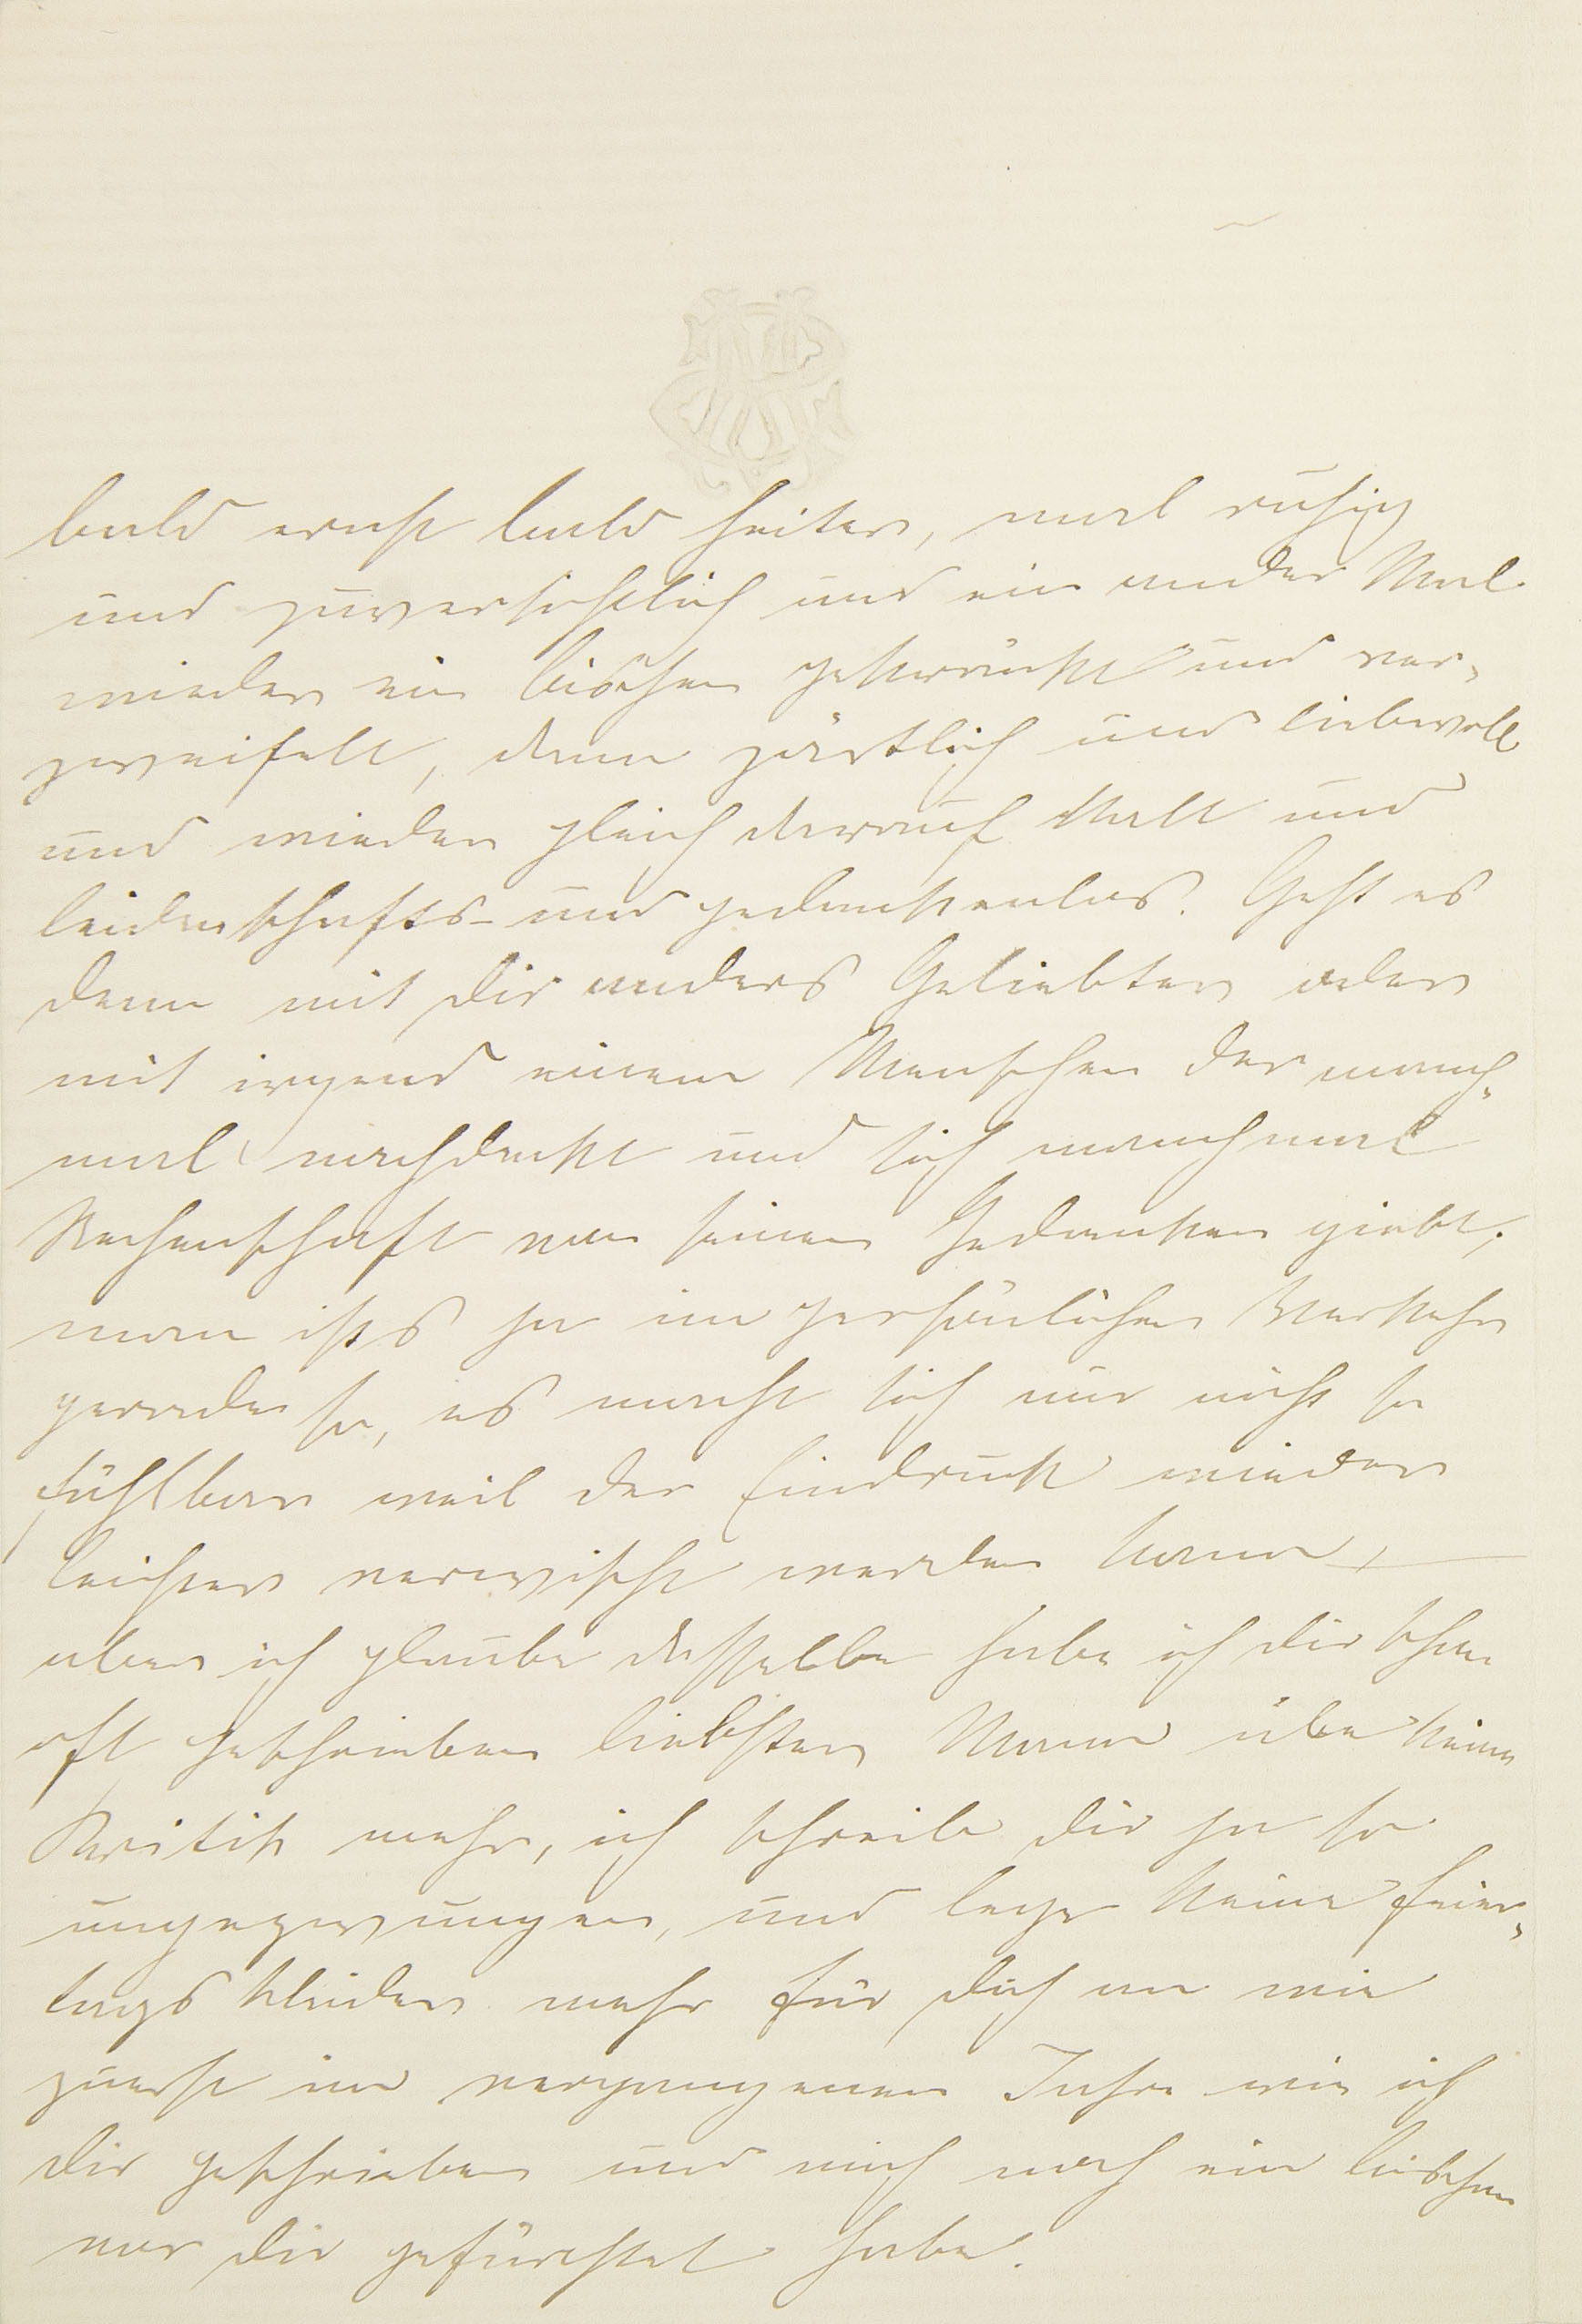 bald ernst bald heiter, mal ruhig
und zuversichtlich und ein ander Mal
wieder ein bischen gekränkt und ver-
zweifelt, dann zärtlich und liebevoll
und wieder gleich darauf kalt und
leidenschafts- und gedankenlos. Geht es
denn mit Dir anders Geliebter oder
mit irgend einem Menschen der manch-
mal nachdenkt und sich manchmal
Rechenschaft von seinen Gedanken giebt,
man ists ja im persönlichen Verkehr
gerade so, es macht sich nur nicht so
fühlbar weil der Eindruck wieder
leichter verwischt werden kann,
aber ich glaube dasselbe habe ich Dir schon
oft geschrieben liebster Mann übe keine
Kritik mehr, ich schreibe Dir ja so
ungezwungen, und lege keine Feier-
tags kleider mehr für Dich an wie
zuerst im vergangenen Jahre wie ich
Dir geschrieben und mich noch ein bischen
vor Dir gefürchtet habe.